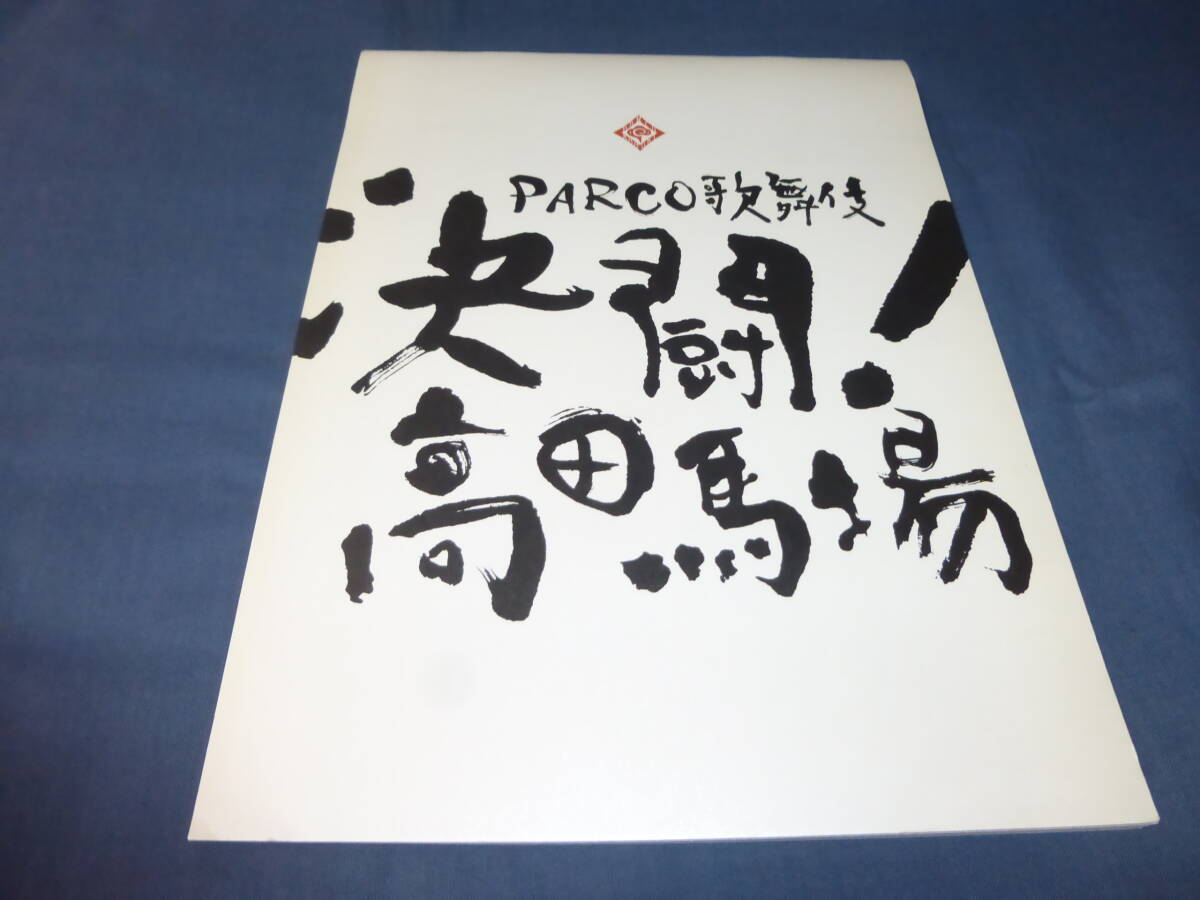 PARCO歌舞伎
決闘！
高田馬場